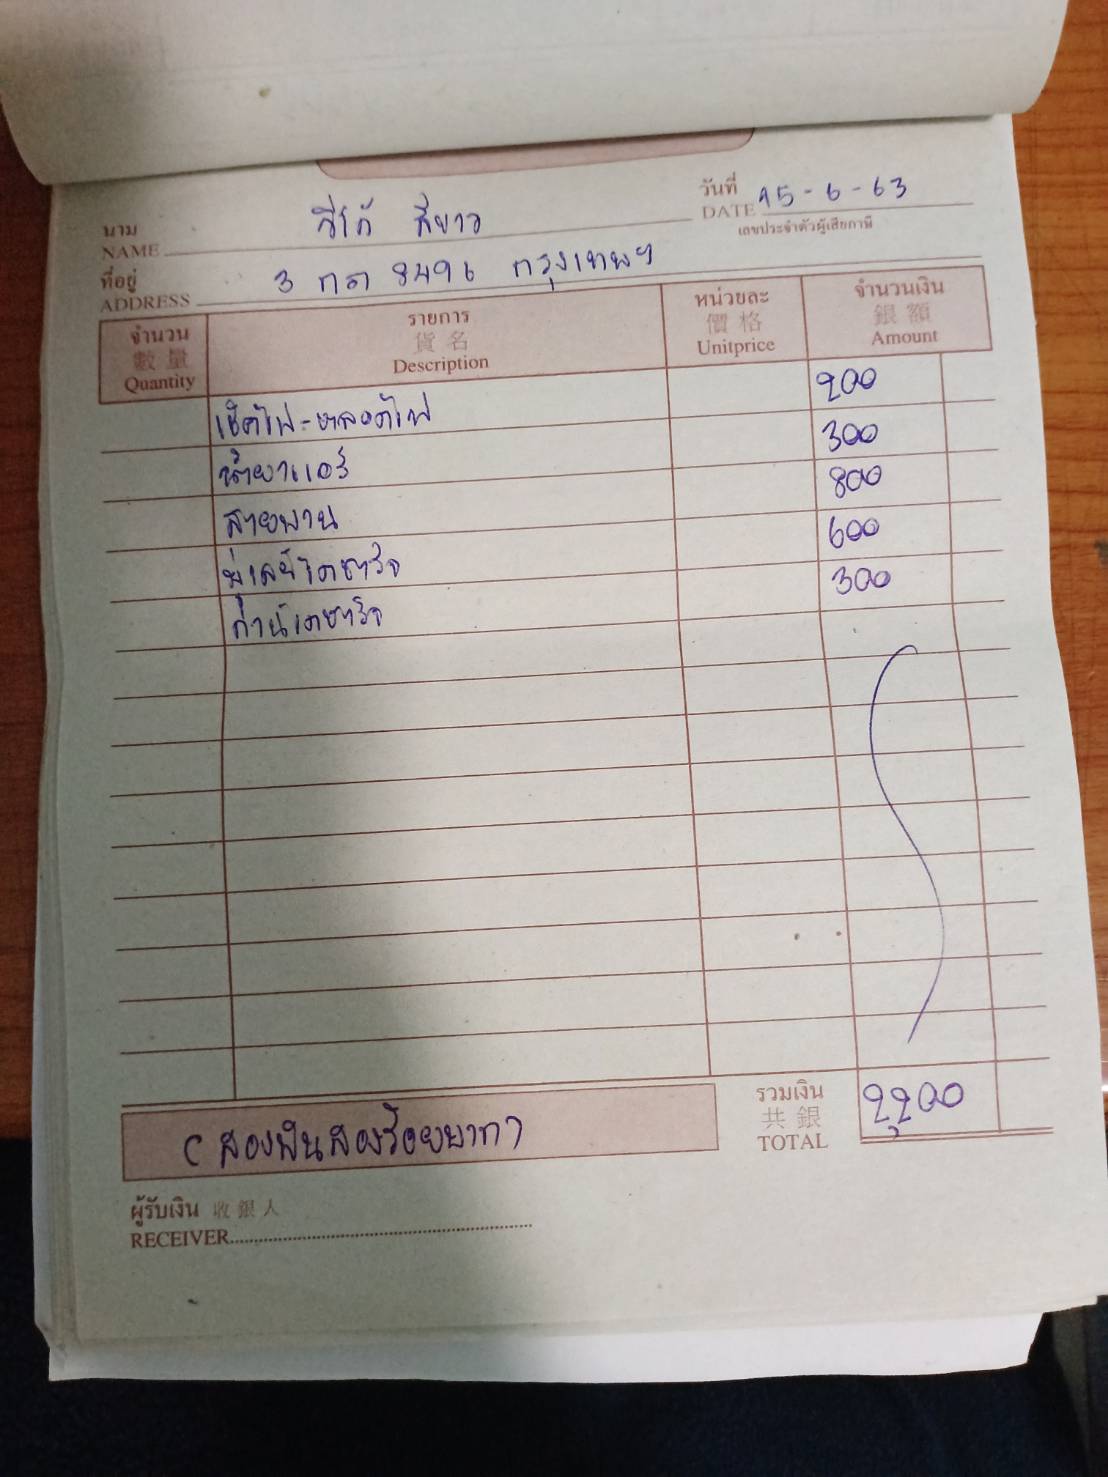 นาม วีโก้ สีขาว วันที่ 15-6-63
NAME DATE
เลขประจำตัวผู้เสียภาษี
ที่อยู่ 3 กต 8496 กรุงเทพฯ
ADDRESS
จำนวน รายการ หน่วยละ จำนวนเงิน
數量 貨名 價格 銀額
Quantity Description Unitprice Amount
เช็คไฟ-หลอดไฟ 200
น้ำยาแอร์ 300
สายพาน 800
พูเลย์ไดชาร์จ 600
ก้านไดชาร์จ 300
รวมเงิน 2,200
共銀
TOTAL
(สองพันสองร้อยบาท)
ผู้รับเงิน 收銀人
RECEIVER